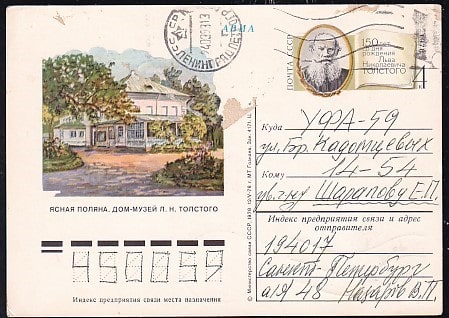 АВИА
ПОЧТА СССР
150 лет
со дня
рождения
Льва
Николаевича
ТОЛСТОГО
4
ЛЕНИНГРАД
ЯСНАЯ ПОЛЯНА. ДОМ-МУЗЕЙ Л. Н. ТОЛСТОГО
Куда УФА-59
ул. Бр. Кадомцевых
Кому 14-54
Шарапову Е.П.
Индекс предприятия связи и адрес
отправителя
194017
Санкт-Петербург
а/я 48 Назаров В.П.
450059
Индекс предприятия связи места назначения
© Министерство связи СССР. 1978